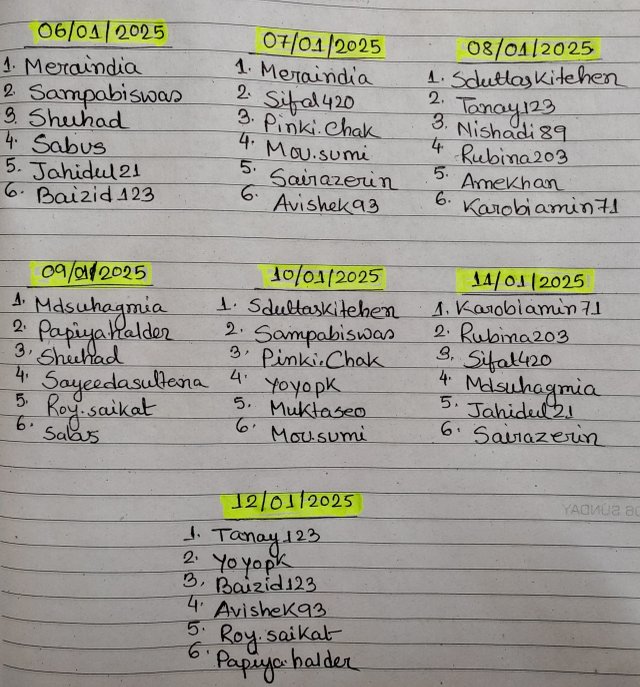 06/01/2025
1. Meraindia
2. Sampabiswas
3. Shuhad
4. Sabus
5. Jahidul21
6. Baizid123
07/01/2025
1. Meraindia
2. Sifal420
3. Pinki.Chak
4. Mou.sumi
5. Sairazerin
6. Avishek93
08/01/2025
1. Sduttaskitchen
2. Tanay123
3. Nishadi89
4. Rubina203
5. Amekhan
6. Karobiamin71
09/01/2025
1. Mdsuhagmia
2. Papiya.halder
3. Shuhad
4. Sayeedasultana
5. Roy.saikat
6. Sabus
10/01/2025
1. Sduttaskitchen
2. Sampabiswas
3. Pinki.Chak
4. Yoyopk
5. Muktaseo
6. Mou.sumi
11/01/2025
1. Karobiamin71
2. Rubina203
3. Sifal420
4. Mdsuhagmia
5. Jahidul21
6. Sairazerin
12/01/2025
1. Tanay123
2. Yoyopk
3. Baizid123
4. Avishek93
5. Roy.saikat
6. Papiya.halder